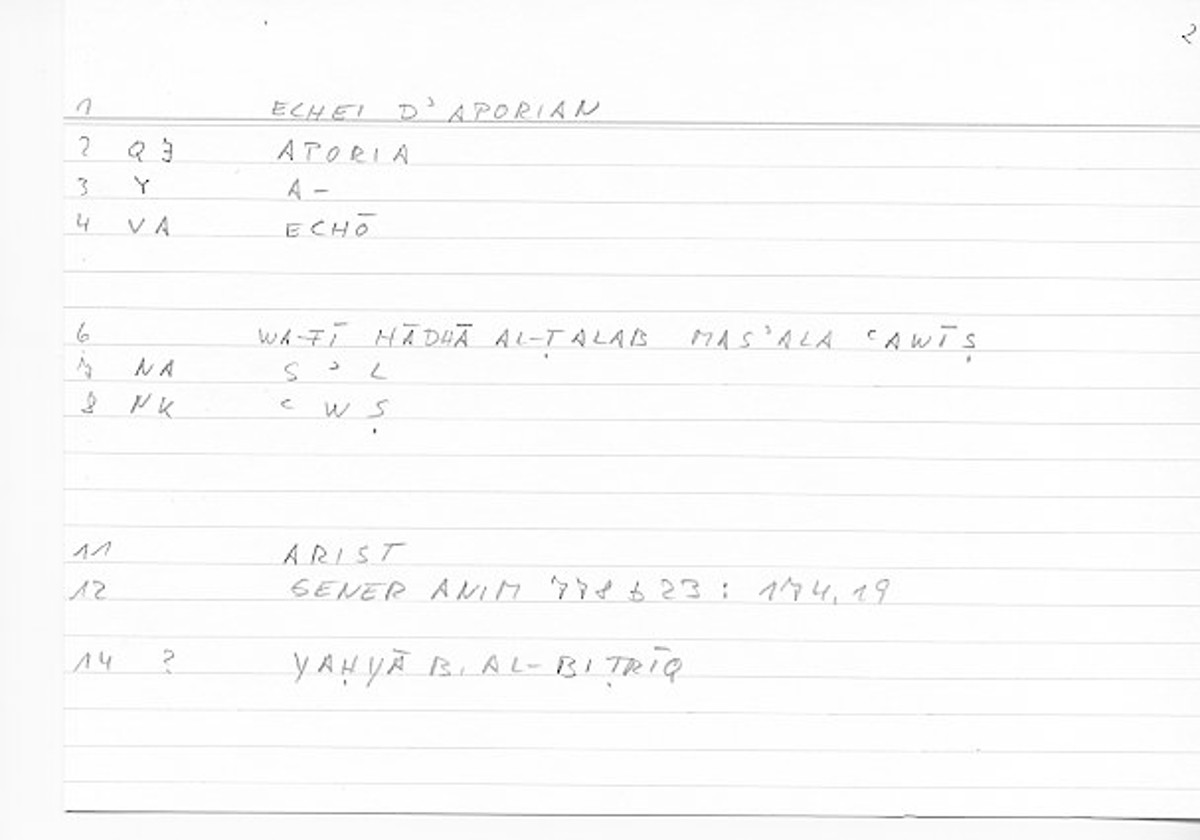 2
1 ECHEI D'APORIAN
2 QJ APORIA
3 Y A-
4 VA ECHŌ
6 WA-FĪ HĀDHĀ AL-ṬALAB MASʾALA ʿAWĪṢ
7 NA S ʾ L
8 NK ʿ W Ṣ
11 ARIST
12 GENER ANIM 778 b 23 : 174,19
14 ? YAḤYĀ B. AL-BIṬRĪQ